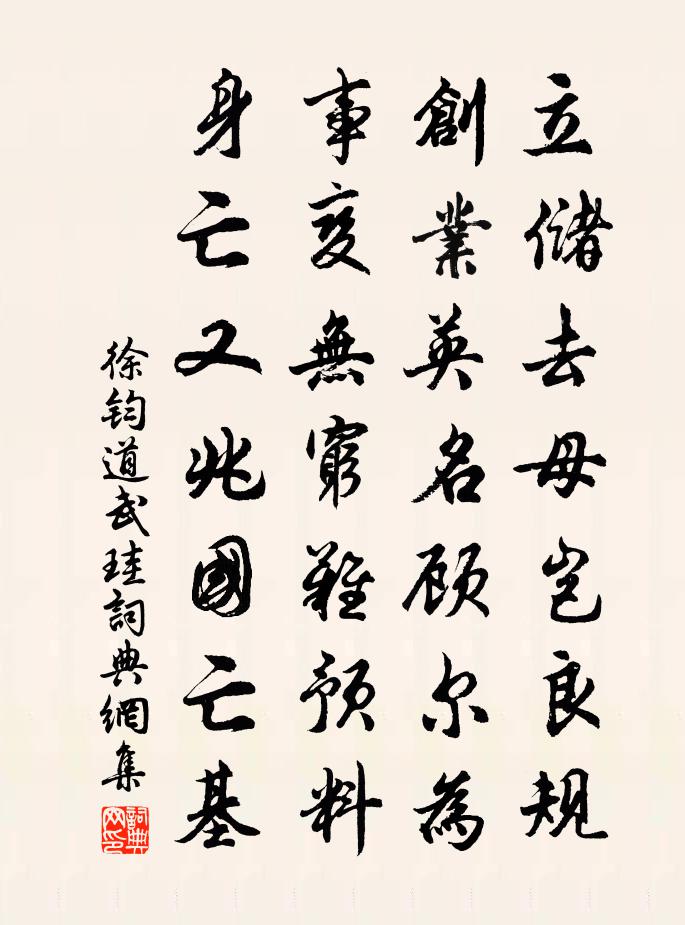 立儲去母豈良規
創業英名顾尔為
事变無窮難預料
身亡又兆國亡基
徐钧道武珪詞典網集
詞典网印